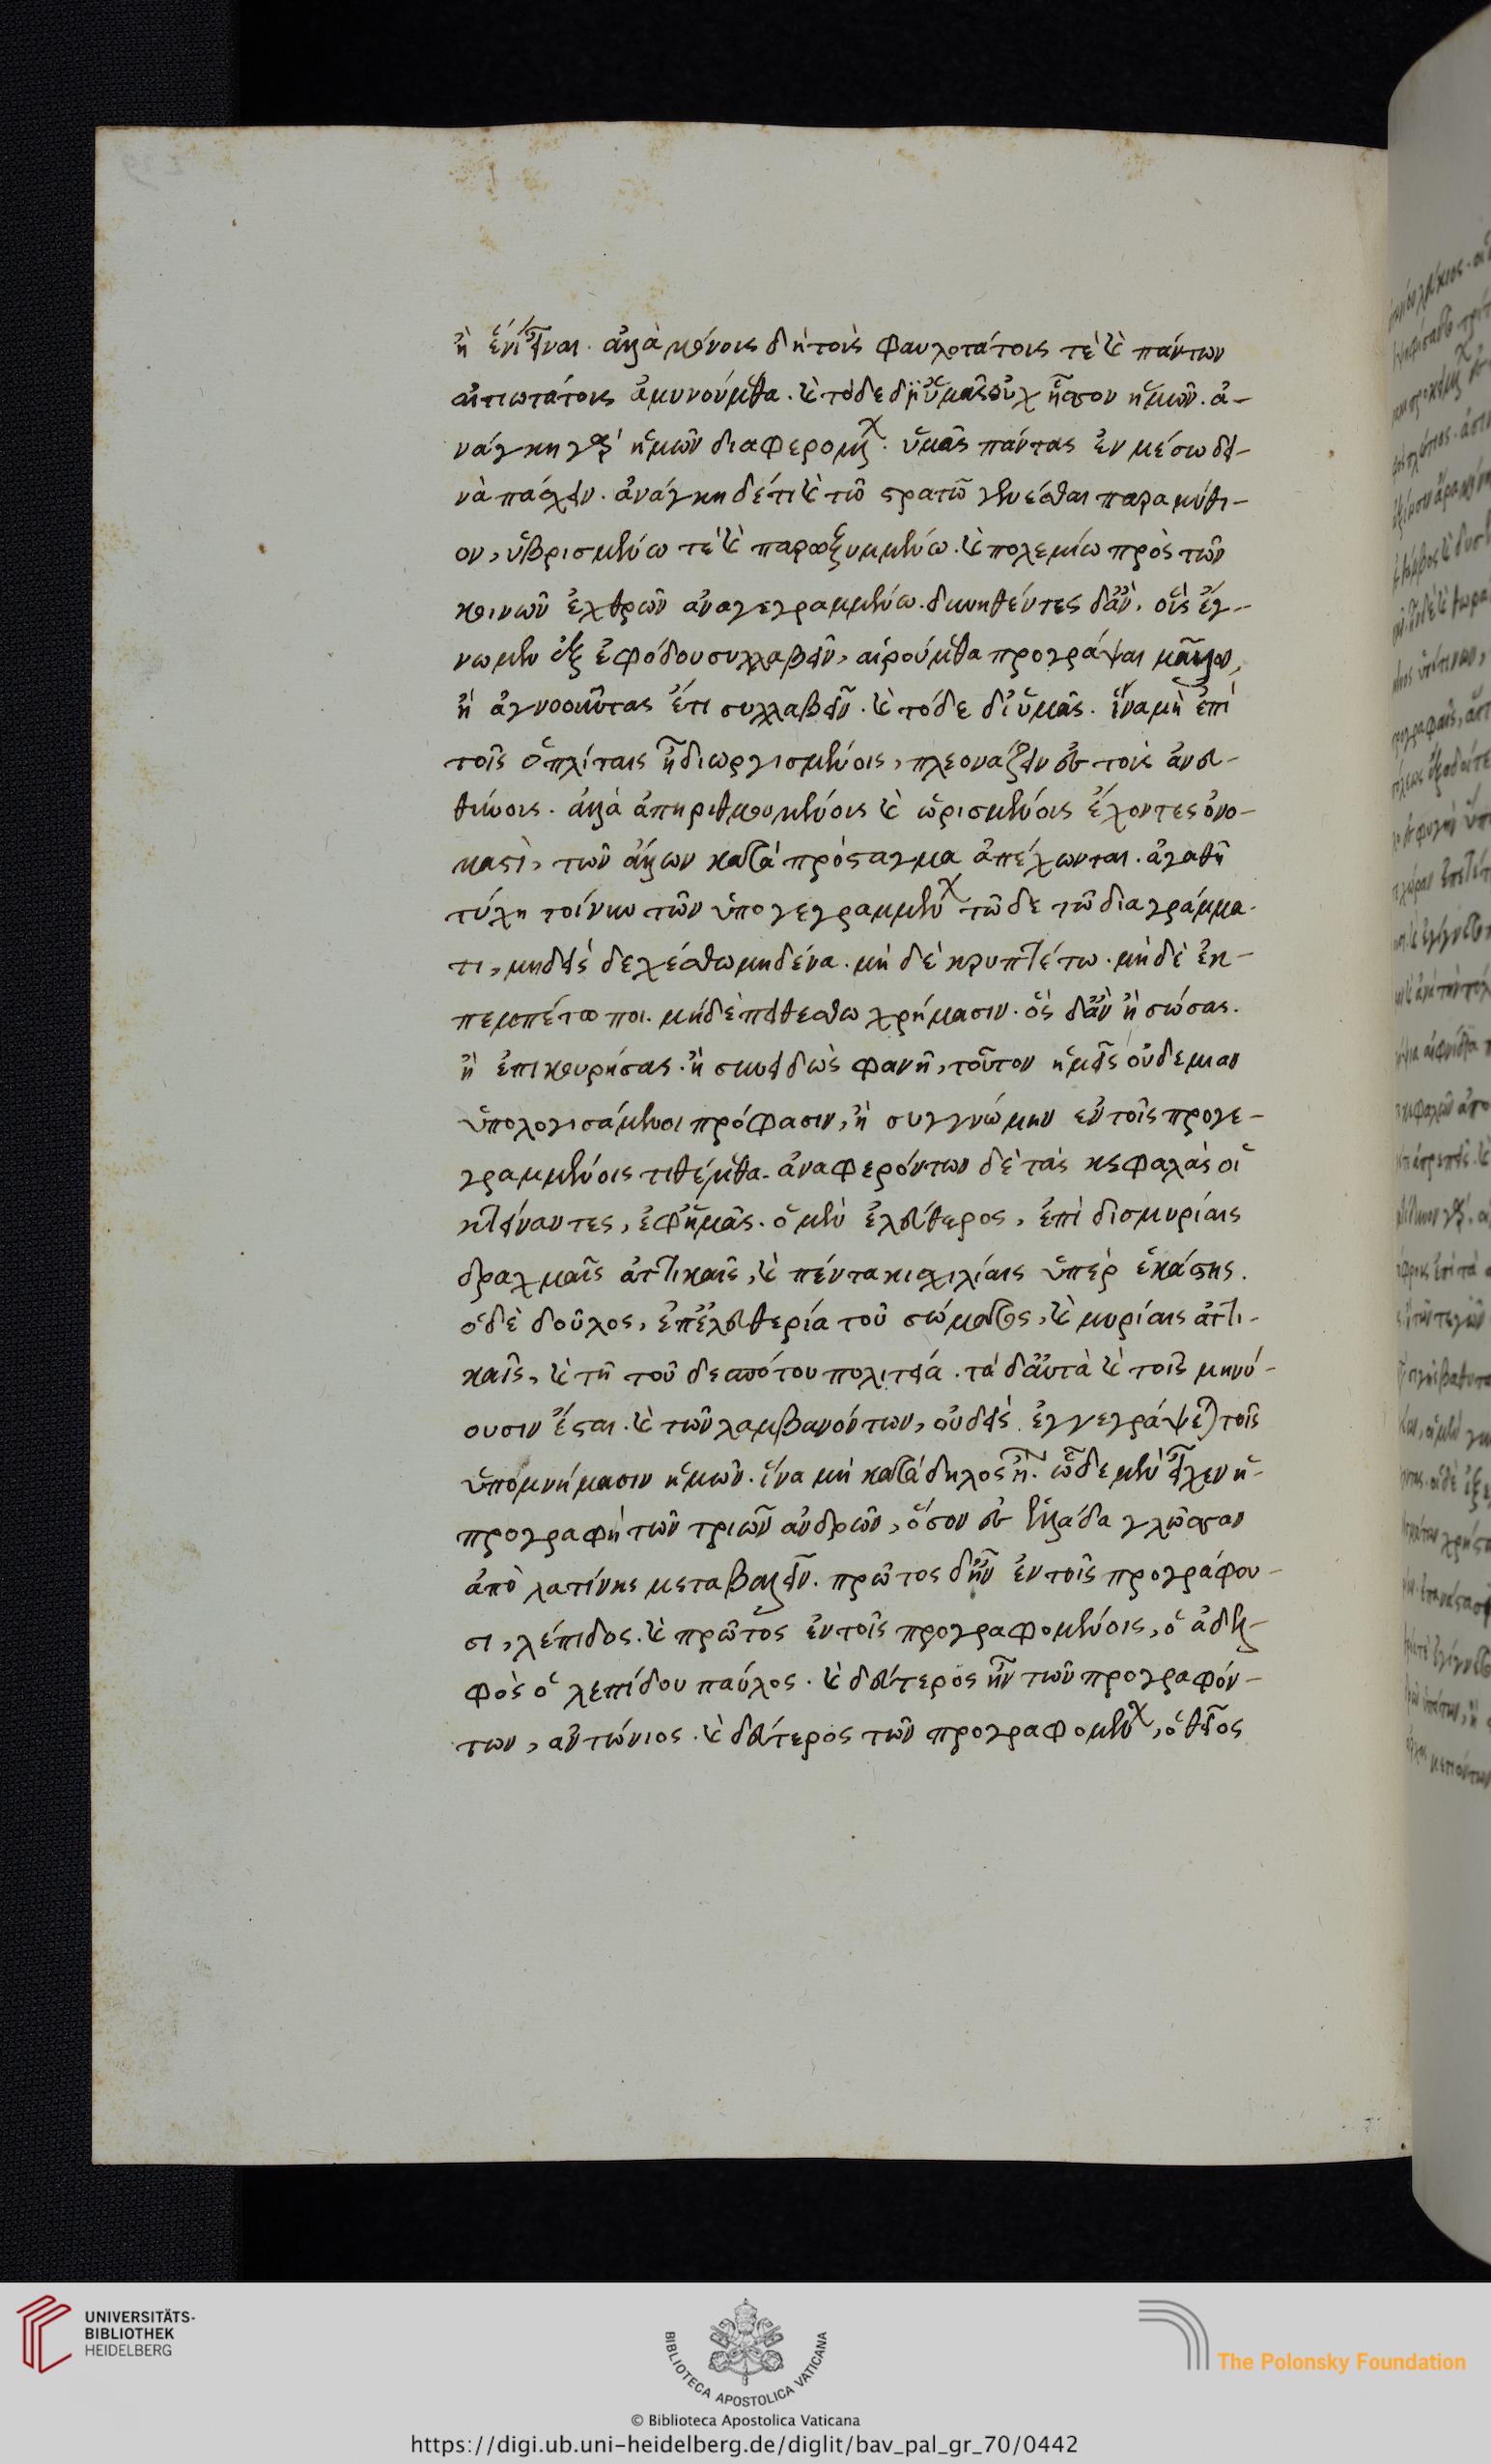 ἢ ἐνίησαν. ἀλλὰ μόνοις δὴ τοῖς φαυλοτάτοις τὲ καὶ πάντων
αἰτιωτάτοις ἀμυνούμεθα. καὶ τόδε δι' ὑμᾶς οὐχ ἧσσον ἡμῶν. ἀ-
νάγκη γὰρ ἡμῶν διαφερομένων. ὑμᾶς πάντας ἐν μέσω δει-
νὰ πάσχειν. ἀνάγκη δέ τι καὶ τῶ στρατῶ γενέσθαι παραμύθι-
ον, ὑβρισμένω τὲ καὶ παρωξυμμένω. καὶ πολεμίω πρὸς τῶν
κοινῶν ἐχθρῶν ἀναγεγραμμένω. δυνηθέντες δ' ἂν, οὓς ἔγ-
νωμεν ἐξ ἐφόδου συλλαβεῖν, αἱρούμεθα προγράψαι μᾶλλον,
ἢ ἀγνοοῦντας ἔτι συλλαβεῖν. καὶ τόδε δι' ὑμᾶς. ἵνα μὴ ἐπὶ
τοῖς ὁπλίταις ἦ διωργισμένοις, πλεονάζειν ἐς τοὺς ἀνευ-
θύνους. ἀλλὰ ἀπηριθμουμένοις καὶ ὡρισμένοις ἔχοντες ὀνό-
μασι, τῶν ἄλλων κατὰ πρόσταγμα ἀπέχωνται. ἀγαθῆ
τύχη τοίνυν τῶν ὑπογεγραμμένων τῶδε τῶ διαγράμμα-
τι, μηδεὶς δεχέσθω μηδένα. μὴ δὲ κρυπτέτω. μὴ δὲ ἐκ-
πεμπέτω ποι. μηδὲ πειθέσθω χρήμασιν. ὃς δ' ἂν ἢ σώσας.
ἢ ἐπικουρήσας. ἢ συνειδὼς φανῆ, τοῦτον ἡμεῖς οὐδεμίαν
ὑπολογισάμενοι πρόφασιν, ἢ συγγνώμην ἐν τοῖς προγε-
γραμμένοις τιθέμεθα. ἀναφερόντων δὲ τὰς κεφαλὰς οἱ
κτείναντες, ἐφ' ἡμᾶς. ὁ μὲν ἐλεύθερος, ἐπὶ δισμυρίαις
δραχμαῖς ἀττικαῖς, καὶ πέντακισχιλίαις ὑπὲρ ἑκάστης.
ὁ δὲ δοῦλος, ἐπ' ἐλευθερία τοῦ σώματος, καὶ μυρίαις ἀττι-
καῖς, καὶ τῆ τοῦ δεσπότου πολιτεία. τὰ δ' αὐτὰ καὶ τοῖς μηνύ-
ουσιν ἔσται. καὶ τῶν λαμβανόντων, οὐδεὶς ἐγγεγράψεται τοῖς
ὑπομνήμασιν ἡμῶν. ἵνα μὴ κατάδηλος ἦ. ὧδε μὲν εἶχεν ἡ
προγραφὴ τῶν τριῶν ἀνδρῶν, ὅσον ἐς ἑλλάδα γλῶσσαν
ἀπὸ λατίνης μεταβαλεῖν. πρῶτος δ' ἦν ἐν τοῖς προγράφου-
σι, λέπιδος. καὶ πρῶτος ἐν τοῖς προγραφομένοις, ὁ ἀδελ-
φὸς ὁ λεπίδου παύλος. καὶ δεύτερος ἦν τῶν προγραφόν-
των, ἀντώνιος. καὶ δεύτερος τῶν προγραφομένων, ὁ θεῖος
UNIVERSITÄTS-
BIBLIOTHEK
HEIDELBERG
BIBLIOTECA APOSTOLICA VATICANA
The Polonsky Foundation
© Biblioteca Apostolica Vaticana
https://digi.ub.uni-heidelberg.de/diglit/bav_pal_gr_70/0442